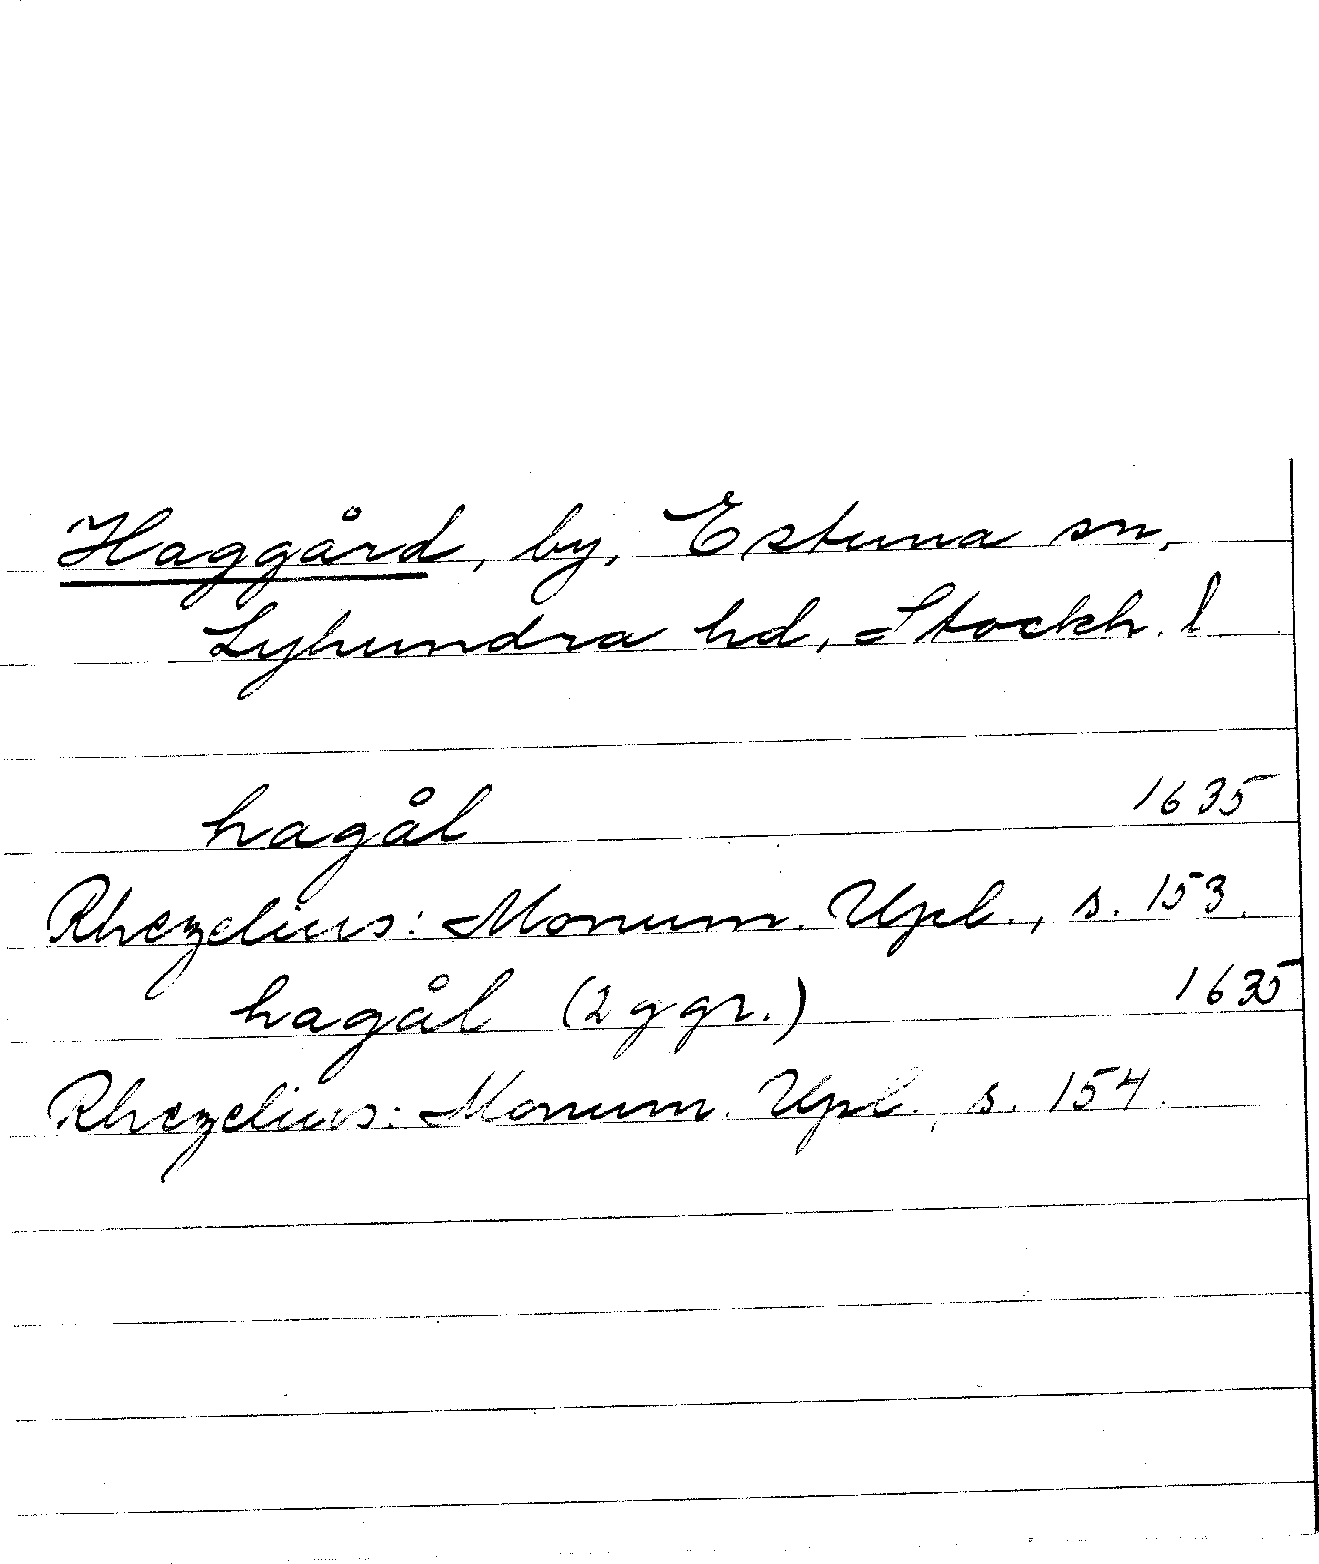 Haggård, by, Estuna sn,
Lyhundra hd, Stockh. l
hagål 1635
Rhezelius: Monum. Upl., s. 153.
hagål (2 ggr.) 1635
Rhezelius: Monum. Upl., s. 154.